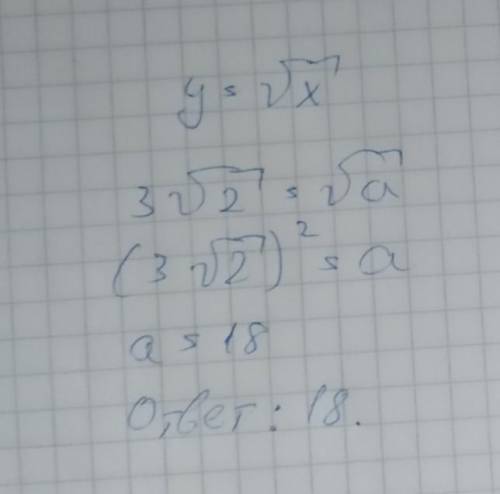 y = √x
3√2 = √a
(3√2)² = a
a = 18
Ответ: 18.